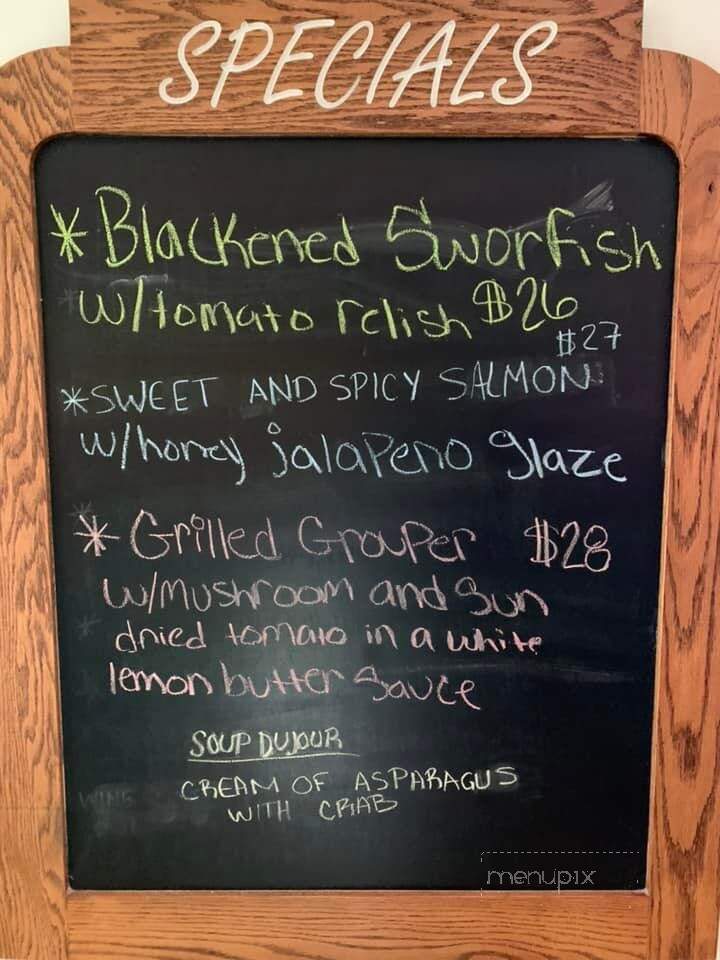 SPECIALS
*Blackened Sworfish
w/tomato relish $26
$27
*SWEET AND SPICY SALMON
w/honey jalapeno glaze
*Grilled Grouper $28
w/mushroom and Sun
dried tomato in a white
lemon butter Sauce
SOUP DU JOUR
CREAM OF ASPARAGUS
WITH CRAB
WINE
menupix